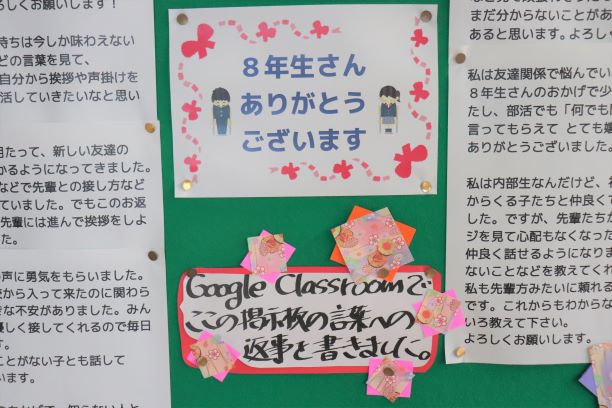 ろしくお願いします!
持ちは今しか味わえない
どの言葉を見て、
自分から挨拶や声掛けを
活していきたいなと思い
当たって、新しい友達の
かるようになってきました。
などで先輩との接し方など
ていました。でもこのお返
先輩には進んで挨拶をしよ
た。
の声に勇気をもらいました。
校から入って来たのに関わら
きな不安がありました。みん
優しく接してくれるので毎日
す。
ことがない子とも話して
います。
8年生さん
ありがとう
ございます
Google Classroomで
この掲示板の言葉への
返事を書きました。
まだ分からないことがあ
あると思います。よろしく
私は友達関係で悩んでい
8年生さんのおかげで少
たし、部活でも「何でも
言ってもらえて とても嬉
ありがとうございました。
私は内部生なんだけど、
からくる子たちと仲良くで
した。ですが、先輩たち
ジを見て心配もなくなった
仲良く話せるようになりま
ないことなどを教えてくれ
私も先輩方みたいに頼れる
です。これからもわからな
いろ教えて下さい。
よろしくお願いします。